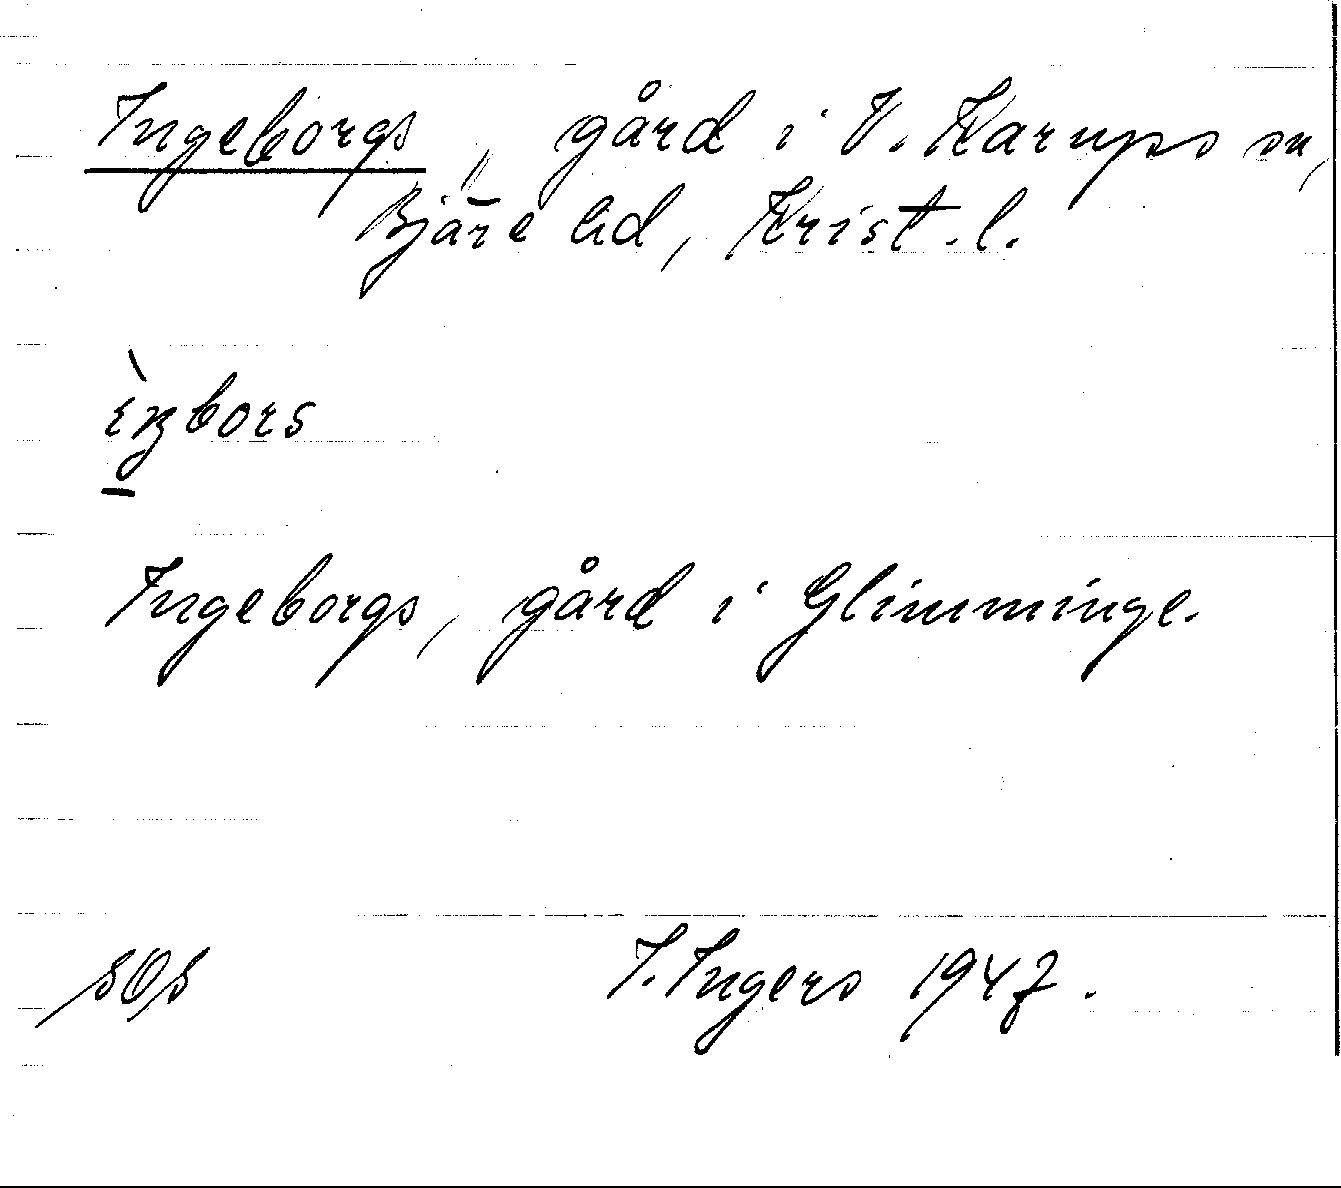 Ingeborgs, gård i V. Karups sn,
Bjäre hd, Krist. l.
Ingeborgs, gård i Glimminge.
I. Ingers 1947.